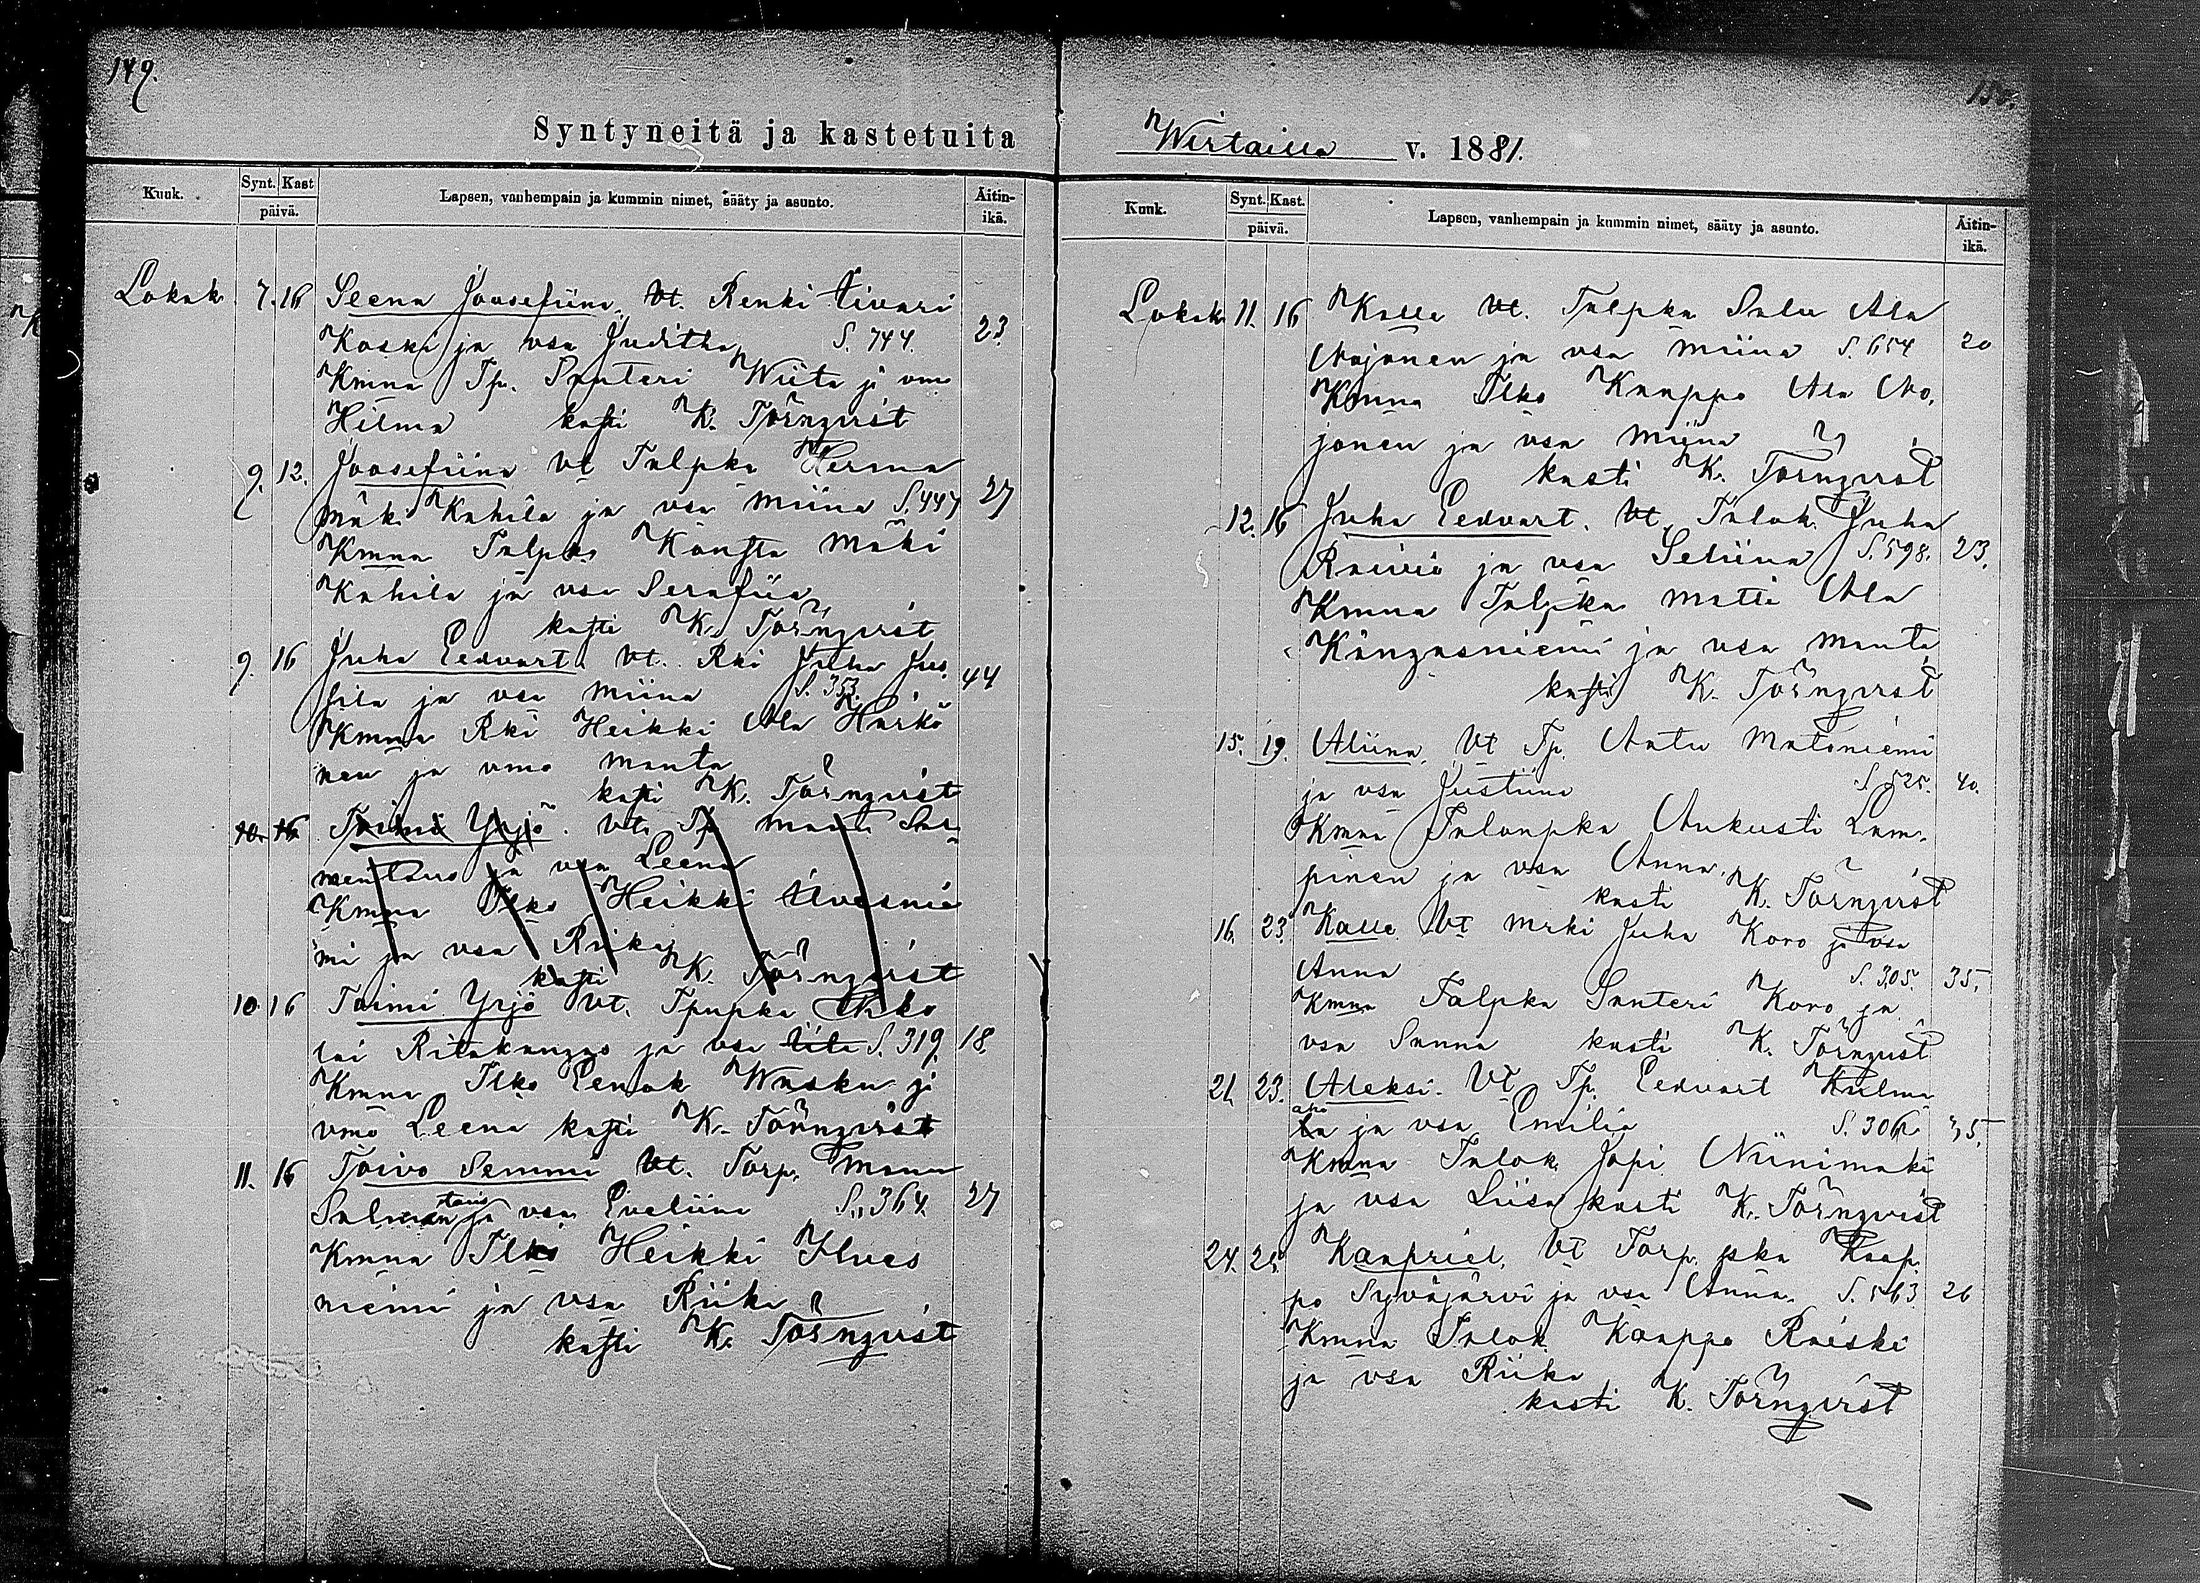 149.
Syntyneitä ja kastetuita
Kuuk. Synt. Kast päivä. Lapsen, vanhempain ja kummin nimet, sääty ja asunto. Äitin-ikä.
Lokak. 7. 16 Seena Joosefiina. Vt. Renki Iivari
Koski ja vsa Juditha S. 744. 23
Kmna Tp. Santeri Wiita ja vmo
Hilma kasti K. Törnqvist
9. 12. Joosefiina Vt Talpka Herma
mäki Kahila ja vsa Miina S. 447 27
Kmna Talpka Kansta Mäki
Kahila ja vsa Serafiia
kasti K. Törnqvist
9. 16 Juha Eedvart. Vt. Rki Juha Jus
sila ja vsa Miina S. 353. 44
Kmna Rki Heikki Ala Härkö
nen ja vmo Manta
kasti K. Törnqvist
10. 16 Toimi Yrjö. Vt. Tp
ja vsa Leena
Kmna Heikki Ilvesnie
mi ja vsa Riika
kasti K. Törnqvist
10 16 Toimi Yrjö Vt. Tpupka
ja vsa S. 319. 18.
Kmna Tlko Eenok Wasku ja
vmo Leena kasti K. Törnqvist
11. 16 Toivo Semmi Vt. Torp.
ja vsa Eveliina S. 364. 27
Kmna Tlko Heikki Ilves
niemi ja vsa Riika
kasti K. Törnqvist
150.
Wirtailla v. 1881.
Kuuk. Synt. Kast. päivä. Lapsen, vanhempain ja kummin nimet, sääty ja asunto. Äitin-ikä.
Lokak 11. 16 Kalle Vt. Talpka Salu Ala
Nojonen ja vsa Miina S. 654 20
Kmna Tlko Kaappo Ala No,
jonen ja vsa Miina
kasti K. Törnqvist
12. 16 Juha Eedvart. Vt. Talok. Juha
Raiviö ja vsa Seliina S. 598. 23.
Kmna Talpka Matti Ala
Kangasniemi ja vsa Manta
kasti K. Törnqvist
15. 19. Aliina, Vt Tp. Aatu Matoniemi
ja vsa Justiina S. 525. 40.
Kmna Talonpka Aukusti Lam-
pinen ja vsa Anna.
kasti K. Törnqvist
16. 23. Kalle Vt Mrki Juha Koro ja vsa
Anna S. 305. 35.
Kmna Talpka Santeri Koro ja
vsa Sanna kasti K. Törnqvist
21. 23. Aleksi. Vt Tp. Eedvart Kulma
aho ja vsa Emilia S. 306. 35.
Kmna Talok. Japi Niinimäki
ja vsa Liisa kasti K. Törnqvist
24. 25. Kaapriel. Vt Torp. pka Kaap-
po Syväjärvi ja vsa Anna. S. 563 26
Kmna Talok. Kaappo Raiski
ja vsa Riika
kasti K. Törnqvist